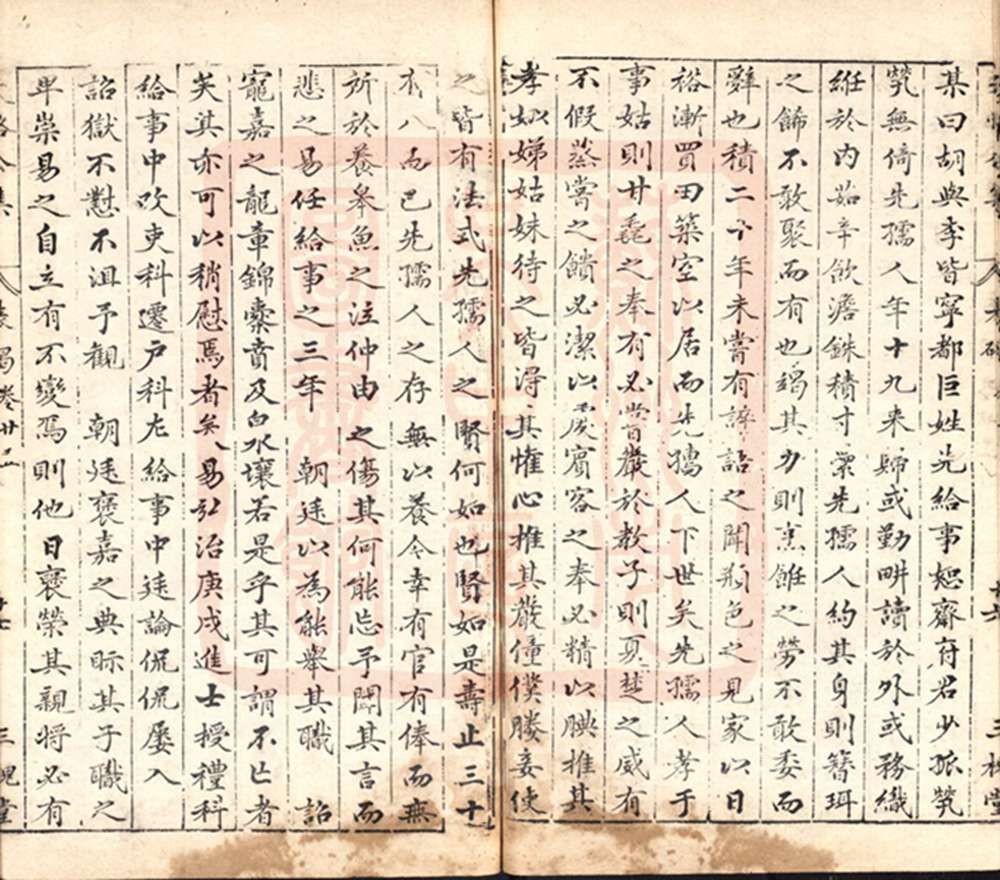 某曰胡與李皆寧都巨姓先給事恕齋府君少孤煢
煢無倚先孺人年十九來歸或勤畊讀於外或務織
紝於內茹辛飲澹銖積寸累先孺人約其身則簪珥
之飾不敢聚而有也竭其力則烹飪之勞不敢委而
辤也積二十年未嘗有誶語之聞剏色之見家以日
裕漸買田築室以居而先孺人下世矣先孺人孝于
事姑則甘毳之奉有必嘗嚴於教子則夏楚之威有
不假蒸嘗之饋必潔以處賓客之奉必精以腆推其
孝姒娣姑妹待之皆淂其懽心推其嚴僮僕媵妾使
之皆有法式先孺人之賢何如也賢如是壽止三十
有八而已先孺人之存無以養今幸有官有俸而無
所於養皋魚之泣仲由之傷其何能忘予聞其言而
悲之易任給事之三年朝廷以為能舉其職詔
寵嘉之龍章錦橐賁及白水壤若是乎其可謂不亡者
矣其亦可以稍慰焉者矣易弘治庚戌進士授禮科
給事中改吏科遷戶科左給事中廷論侃侃屢入
詔獄不懟不沮予觀朝廷褒嘉之典眎其子職之
卑崇易之自立有不變焉則他日褒榮其親將必有